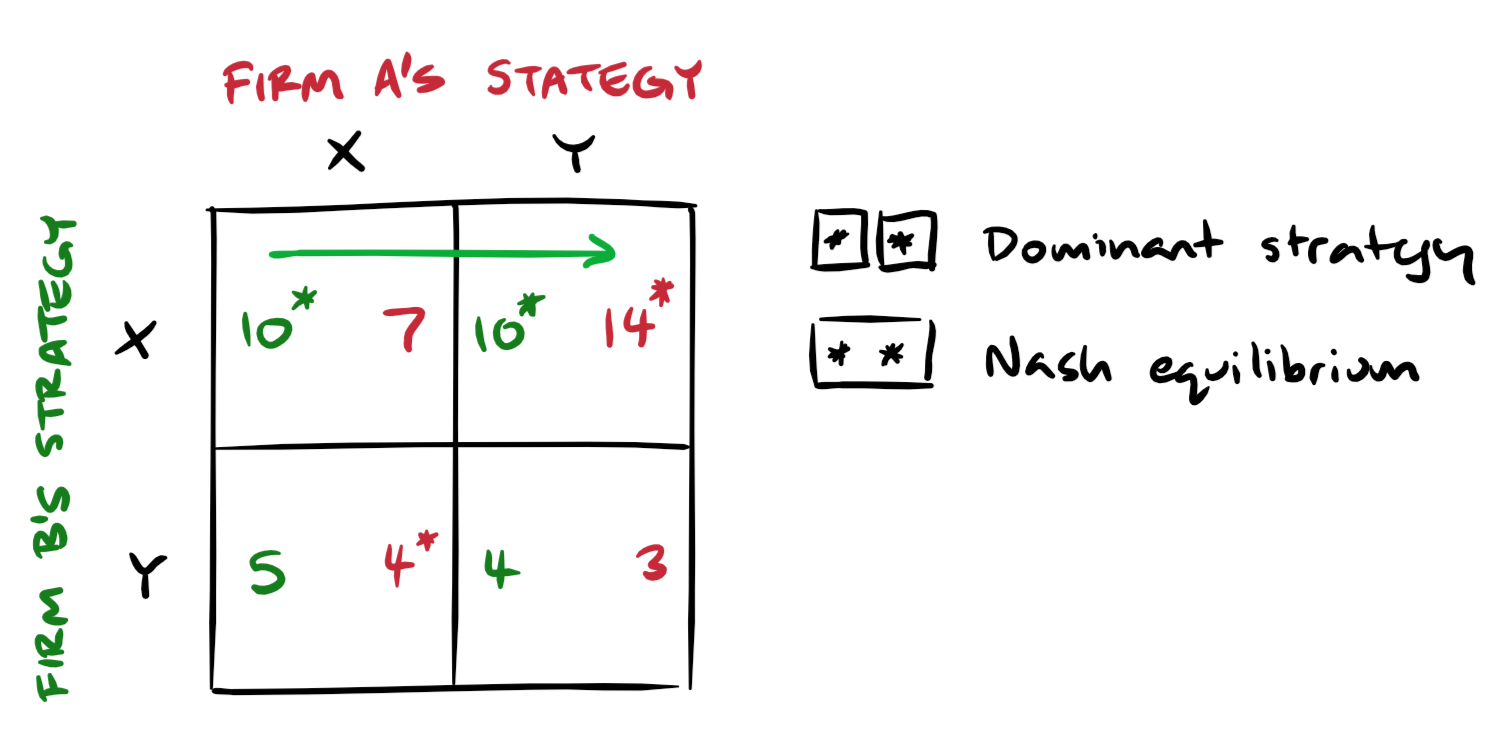 FIRM A'S STATEGY
X Y
FIRM B'S STRATEGY
X
10* 7 10* 14*
Y
5 4* 4 3
* * Dominant strategy
* * Nash equilibrium